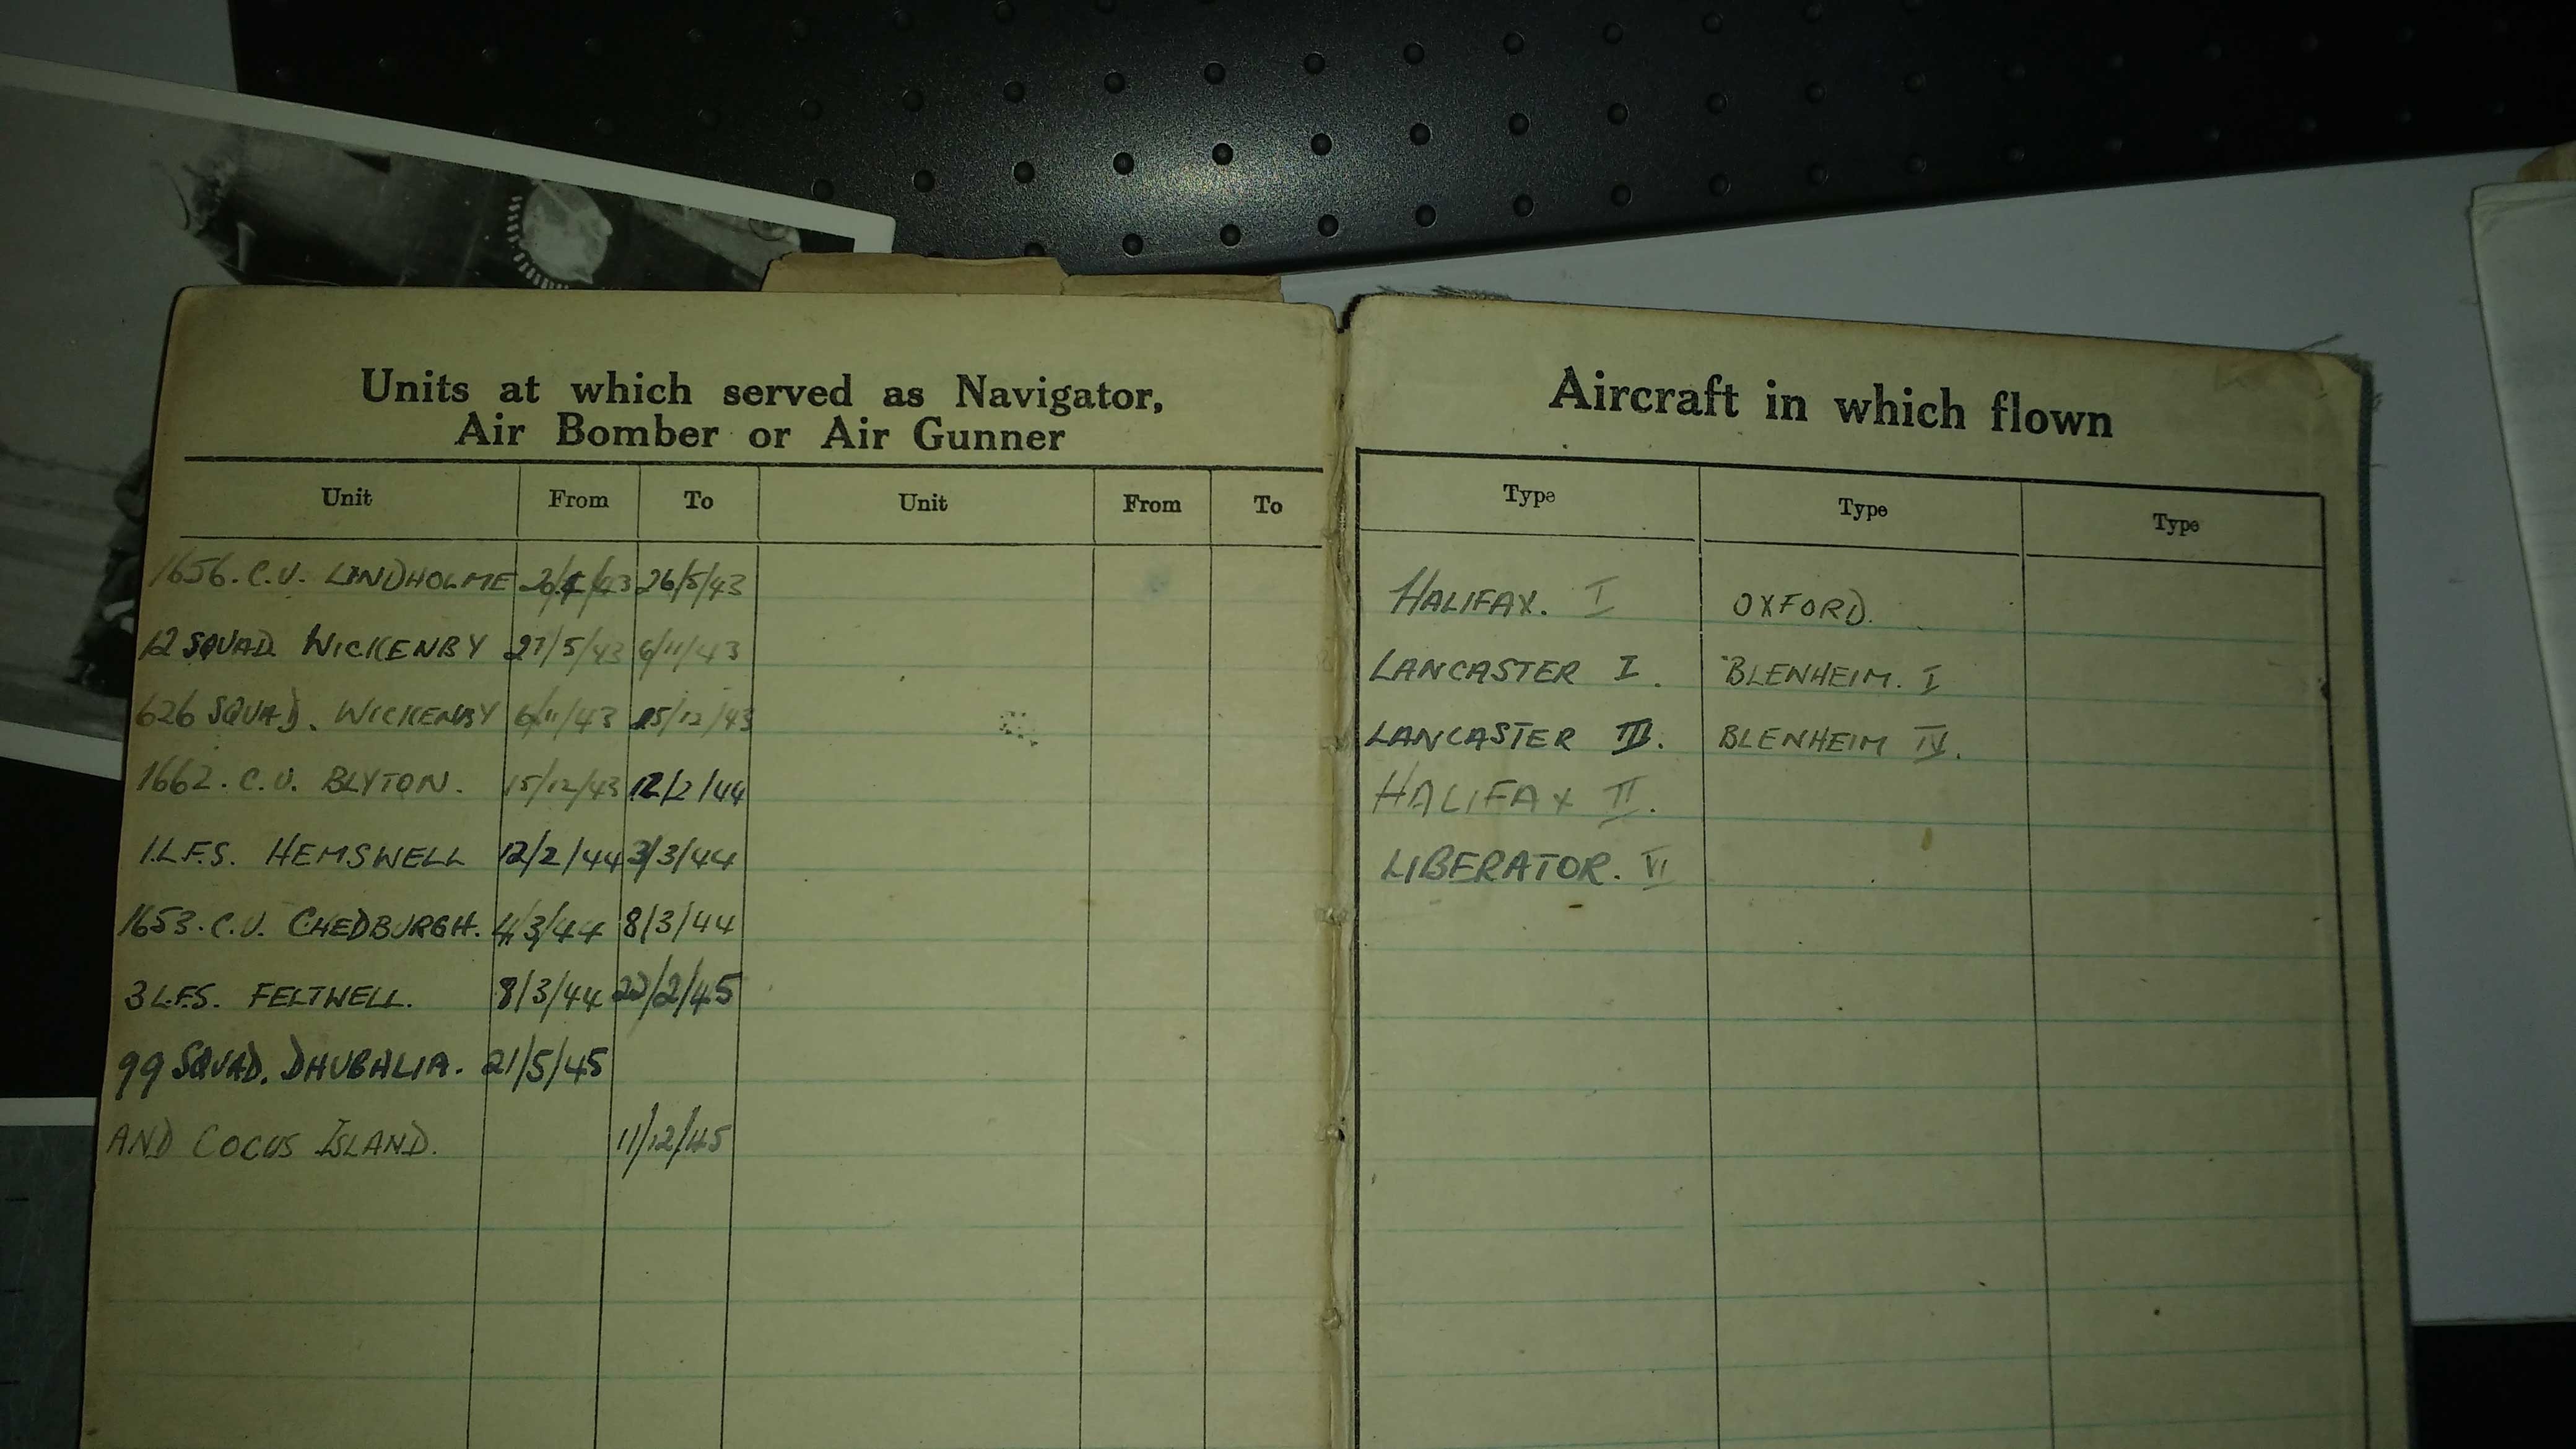 Units at which served as Navigator,
Air Bomber or Air Gunner
Unit From To Unit From To
1656. C.U. LINDHOLME 26/4/43 26/5/43
12 SQUAD WICKENBY 27/5/43 6/11/43
626 SQUAD. WICKENBY 6/11/43 15/12/43
1662. C.U. BLYTON. 15/12/43 12/2/44
1.L.F.S. HEMSWELL 12/2/44 3/3/44
1653. C.U. CHEDBURGH. 4/3/44 8/3/44
3 L.F.S. FELTWELL. 8/3/44 22/2/45
99 SQUAD. DHUBALIA. 21/5/45
AND COCUS ISLAND. 11/12/45
Aircraft in which flown
Type Type Type
HALIFAX. I OXFORD.
LANCASTER I. BLENHEIM. I
LANCASTER III. BLENHEIM IV.
HALIFAX II.
LIBERATOR. VI